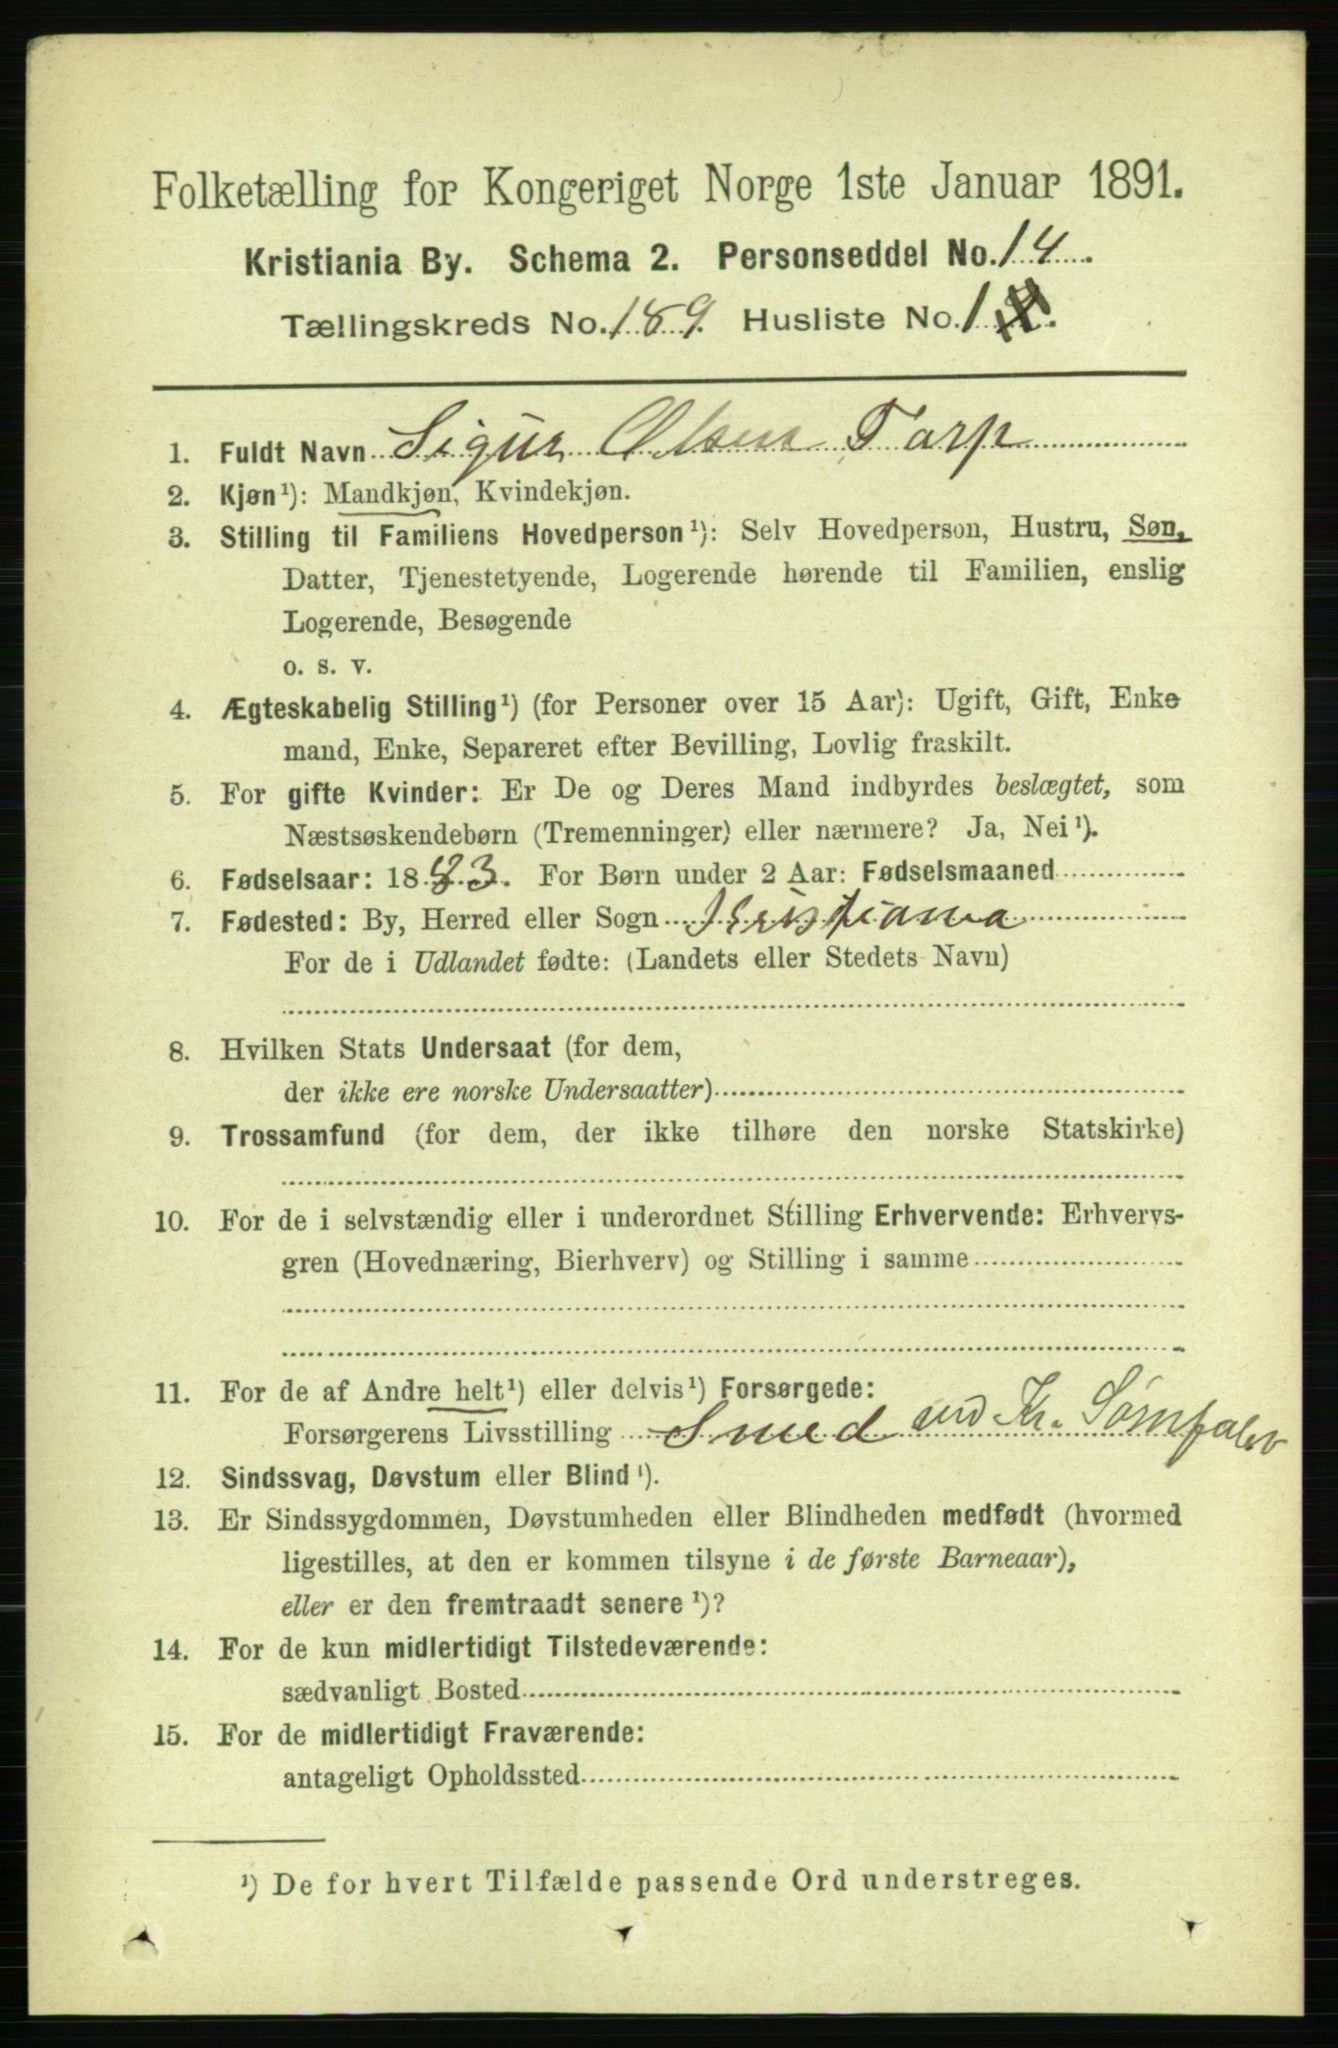 Folketælling for Kongeriget Norge 1ste Januar 1891.
Kristiania By. Schema 2. Personseddel No. 14.
Tællingskreds No. 189. Husliste No. 1.
1. Fuldt Navn Sigur Olsen Tarp
2. Kjøn¹): Mandkjøn, Kvindekjøn.
3. Stilling til Familiens Hovedperson¹): Selv Hovedperson, Hustru, Søn,
Datter, Tjenestetyende, Logerende hørende til Familien, enslig
Logerende, Besøgende
o. s. v.
4. Ægteskabelig Stilling¹) (for Personer over 15 Aar): Ugift, Gift, Enke
mand, Enke, Separeret efter Bevilling, Lovlig fraskilt.
5. For gifte Kvinder: Er De og Deres Mand indbyrdes beslægtet, som
Næstsøskendebørn (Tremenninger) eller nærmere? Ja, Nei¹).
6. Fødselsaar: 1883. For Børn under 2 Aar: Fødselsmaaned
7. Fødested: By, Herred eller Sogn Kristiania
For de i Udlandet fødte: (Landets eller Stedets Navn)
8. Hvilken Stats Undersaat (for dem,
der ikke ere norske Undersaatter)
9. Trossamfund (for dem, der ikke tilhøre den norske Statskirke)
10. For de i selvstændig eller i underordnet Stilling Erhvervende: Erhvervs-
gren (Hovednæring, Bierhverv) og Stilling i samme
11. For de af Andre helt¹) eller delvis¹) Forsørgede:
Forsørgerens Livsstilling Smed ved Kr.
12. Sindssvag, Døvstum eller Blind¹).
13. Er Sindssygdommen, Døvstumheden eller Blindheden medfødt (hvormed
ligestilles, at den er kommen tilsyne i de første Barneaar),
eller er den fremtraadt senere¹)?
14. For de kun midlertidigt Tilstedeværende:
sædvanligt Bosted
15. For de midlertidigt Fraværende:
antageligt Opholdssted
¹) De for hvert Tilfælde passende Ord understreges.